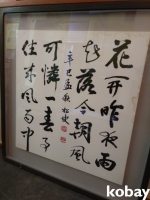 花開昨夜雨
花落今朝風
可憐一春事
往來風雨中
辛巳孟
kobay